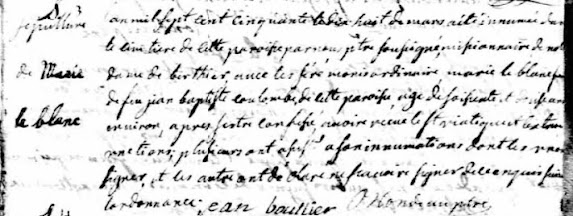 Sepulture
de Marie
le blanc
L'an mil sept cent cinquante le dix huit de mars a été innumee dans
le cimetiere de cette paroisse par nous ptre sousigné missionnaire de not
dame de berthier, avec les céré monies ordinaire, marie le blanc fem
de feu jean baptiste coulombe, de cette paroisse, age de soisente et
environ, apres s'estre confessé, avoir receue le st viatique et les extre
onctions, plusieurs ont assis a son innumations dont les uns
signer, et les autre ont declare ne scavoire signer de ce enquis suiv
l'ordonnance. jean bouthier ptre